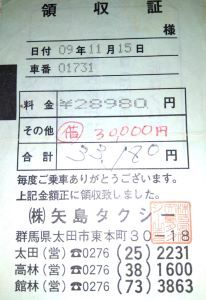 領収証
様
日付 09年11月15日
車番 01731
料金 ¥28980 円
その他 借 30,000円
合計 円
毎度ご乗車ありがとうございます。
上記金額正に領収致しました。
㈱矢島タクシー
群馬県太田市東本町30-18
太田(営)☎0276(25)2231
高林(営)☎0276(38)1600
館林(営)☎0276(73)3863